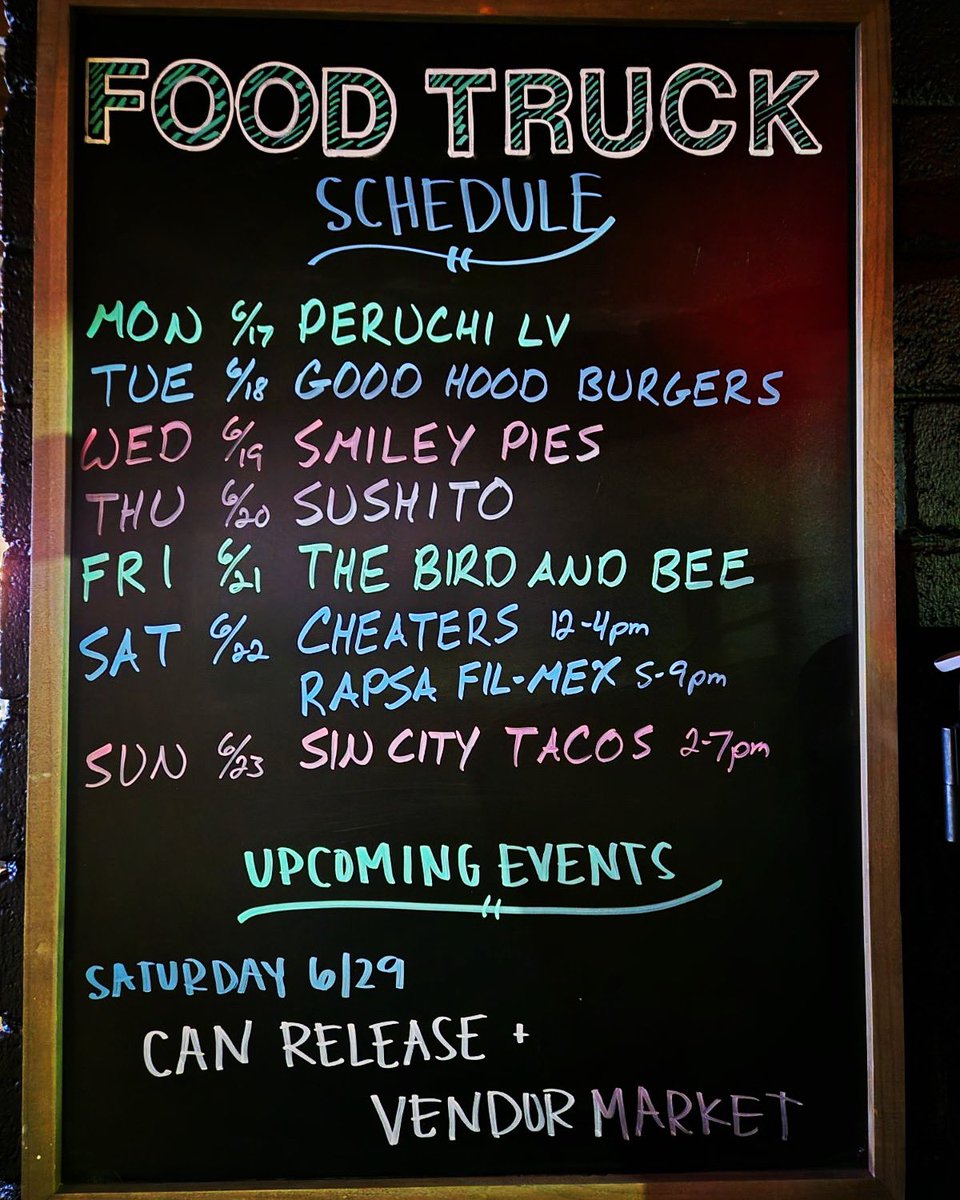 FOOD TRUCK
SCHEDULE
MON 6/17 PERUCHI LV
TUE 6/18 GOOD HOOD BURGERS
WED 6/19 SMILEY PIES
THU 6/20 SUSHITO
FRI 6/21 THE BIRD AND BEE
SAT 6/22 CHEATERS 12-4pm
RAPSA FIL-MEX 5-9pm
SUN 6/23 SIN CITY TACOS 2-7pm
UPCOMING EVENTS
SATURDAY 6/29
CAN RELEASE +
VENDOR MARKET